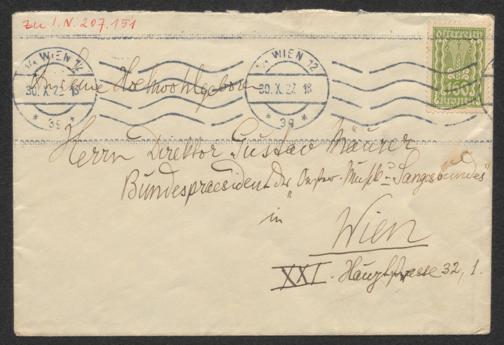 zu I.N. 207.151
1/1 WIEN 12
30.X.22.18
* 3g *
1/1 WIEN 12
30.X.22.18
* 3g *
österreich
150
Kronen
Seine Hochwohlgeboren
Herrn Direktor Gustav Maurer
Bundespraesident des "Oesterr. Musik- u. Sangesbundes"
in
Wien
XXI. Hauptstrasse 32, 1.